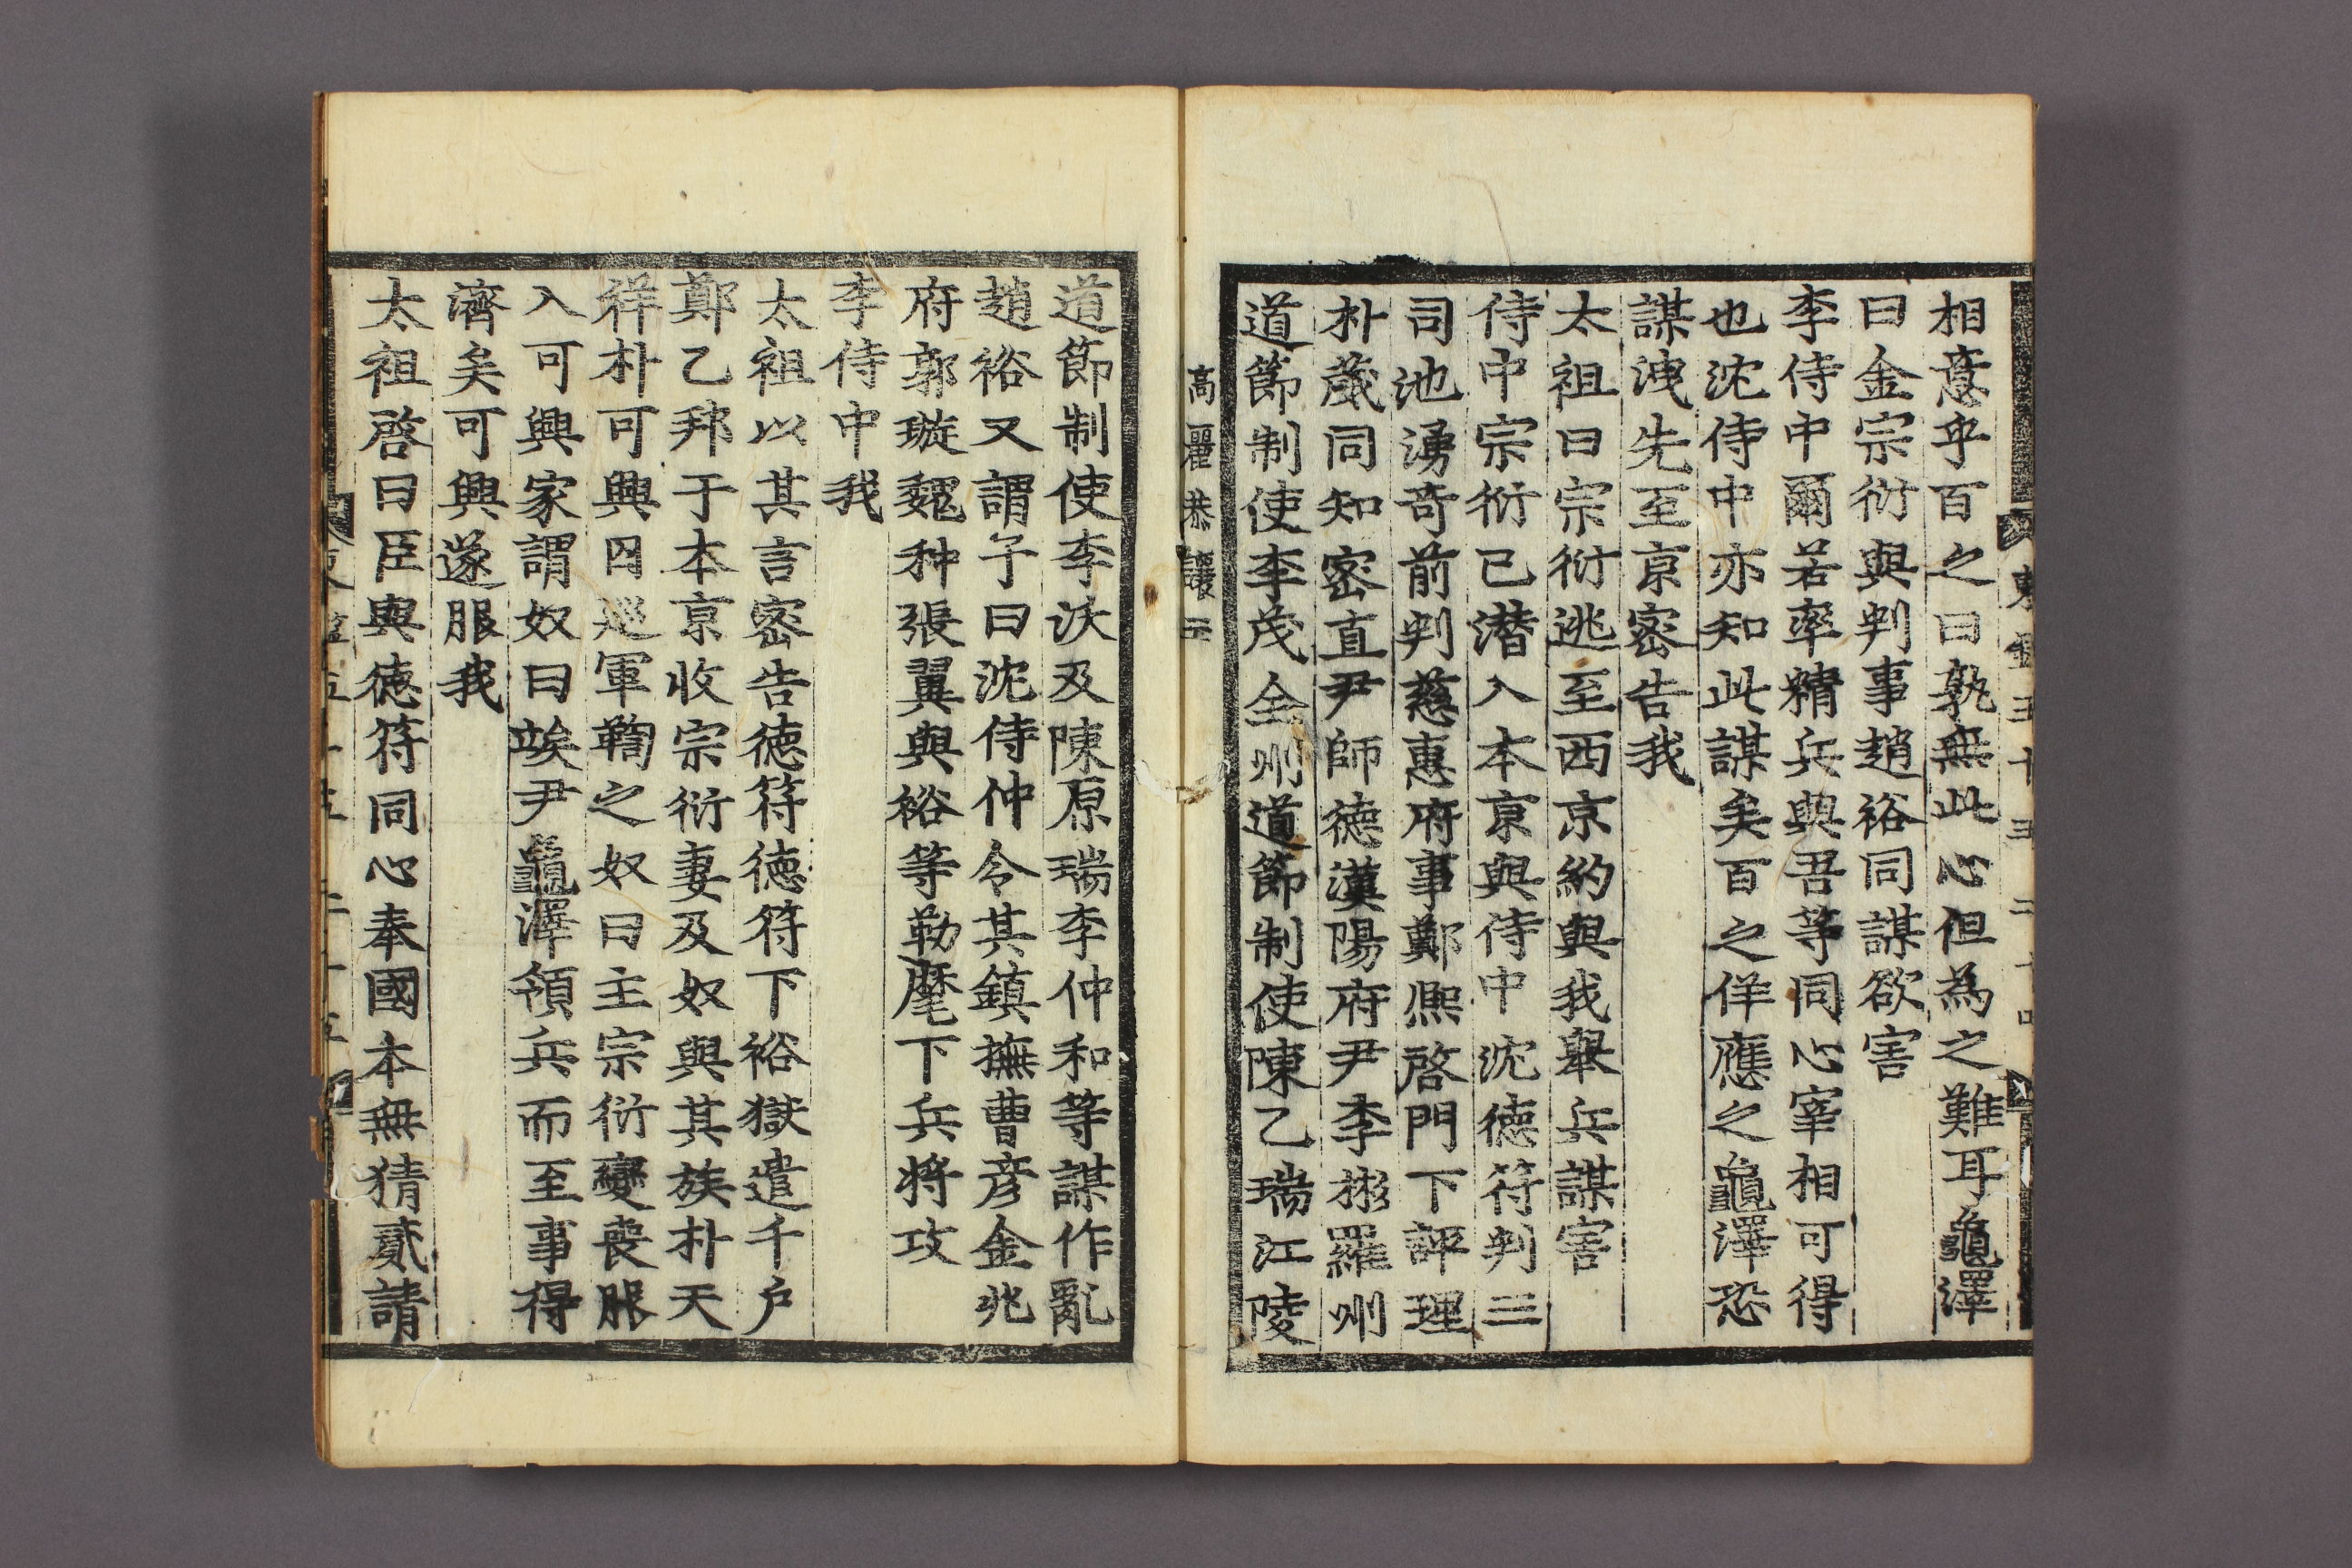 相意乎百之曰孰無此心但為之難耳龜澤
曰金宗衍與判事趙裕同謀欲害
李侍中爾若率精兵與吾等同心宰相可得
也沈侍中亦知此謀矣百之佯應之龜澤恐
謀洩先至京密告我
太祖曰宗衍逃至西京約與我舉兵謀害
侍中宗衍已潛入本京與侍中沈德符判三
司池湧奇前判慈惠府事鄭熙啓門下評理
朴葳同知密直尹師德漢陽府尹李彬羅州
道節制使李茂全州道節制使陳乙瑞江陵
高麗恭讓二
道節制使李沃及陳原瑞李仲和等謀作亂
趙裕又謂予曰沈侍仲令其鎮撫曹彦金兆
府郭璇魏种張翼與裕等勒麾下兵將攻
李侍中我
太祖以其言密告德符德符下裕獄遣千户
鄭乙邦于本京收宗衍妻及奴與其族朴天
祥朴可興囚巡軍鞫之奴曰主宗衍變喪服
入可興家謂奴曰竢尹龜澤領兵而至事得
濟矣可興遂服我
太祖啓曰臣與德符同心奉國本無猜貳請